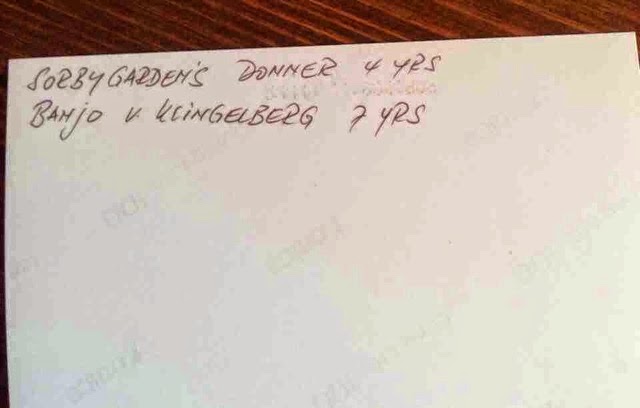 SORBYGARDEN'S DONNER 4 YRS
BANJO v. KLINGELBERG 7 YRS